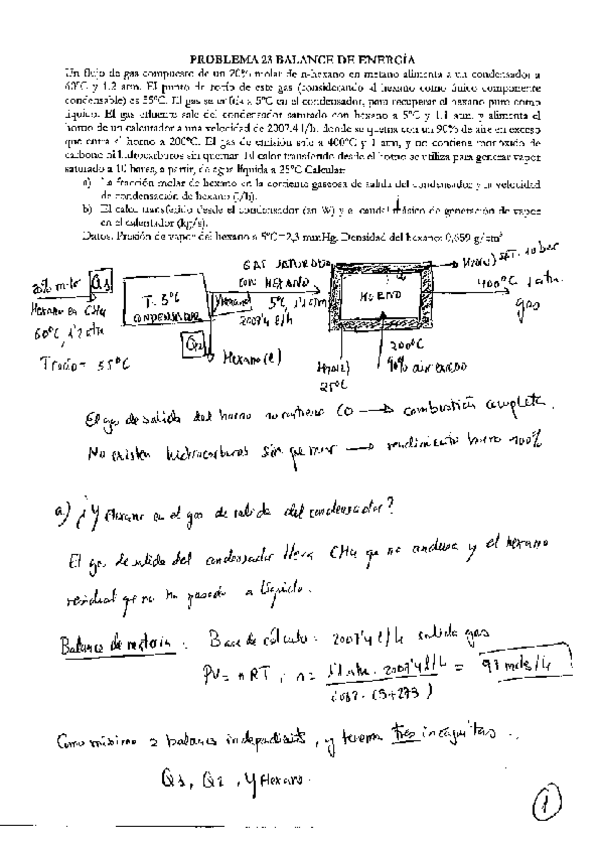 PROBLEMA 23 BALANCE DE ENERGÍA
Un flujo de gas compuesto de un 20% molar de n-hexano en metano alimenta a un condensador a
60ºC y 1.2 atm. El punto de rocío de este gas (considerando al hexano como único componente
condensable) es 55ºC. El gas se enfría a 5ºC en el condensador, para recuperar el hexano puro como
líquido. El gas efluente sale del condensador saturado con hexano a 5ºC y 1.1 atm. y alimenta el
horno de un calentador a una velocidad de 2007.4 l/h. donde se quema con un 90% de aire en exceso
que entra al horno a 200ºC. El gas de emisión sale a 400ºC y 1 atm, y no contiene monóxido de
carbono ni hidrocarburos sin quemar. El calor transferido desde el horno se utiliza para generar vapor
saturado a 10 bares, a partir, de agua líquida a 25ºC Calcular:
a) La fracción molar de hexano en la corriente gaseosa de salida del condensador y la velocidad
de condensación de hexano (l/h).
b) El calor transferido desde el condensador (en W) y el caudal másico de generación de vapor
en el calentador (kg/s).
Datos: Presión de vapor del hexano a 5ºC= 2,3 mmHg. Densidad del hexano: 0,659 g/cm³
Q1
Hexano en CH4
60ºC, 1'2 atm
Trocío = 55ºC
T. 5ºC
CONDENSADOR
Q2
Hexano (l)
GAS SATURADO
CON HEXANO
Yhexano 5ºC, 1'1 atm
2007'4 l/h
HORNO
H2O(v) SAT. 10 bar
400ºC 1 atm.
gas
H2O(l)
25ºC
200ºC
90% aire exceso
El gas de salida del horno no contiene CO → combustión completa.
No existen hidrocarburos sin quemar → rendimiento horno 100%
a) ¿Y Hexano en el gas de salida del condensador?
El gas de salida del condensador lleva CH4 que no condensa y el hexano
residual que no ha pasado a líquido.
Balance de materia: Base de cálculo: 2007'4 l/h salida gas
PV = nRT ; n = 1'1 atm. 2007'4 l/h / 0'082 · (5+273) = 97 mols/h
Como máximo 2 balances independients, y tenemos tres incógnitas.
Q1, Q2, Y Hexano.
1